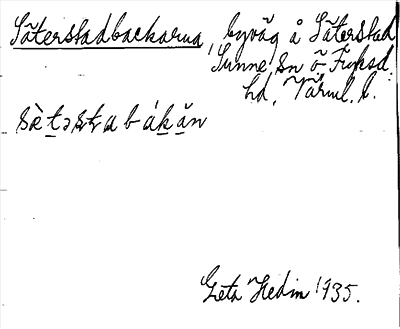 Säterstadbackarna, byväg å Säterstad
Sunne sn ö Fryksd.
hd, Värml. l.
sèt̲əstabák̲a̲n
Greta Hedin 1935.